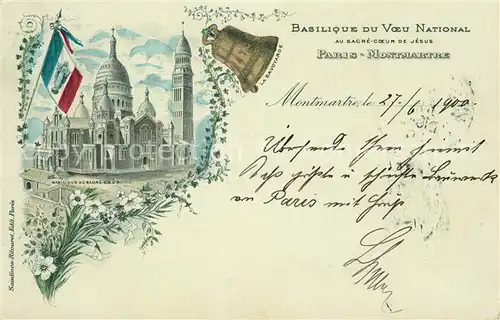 BASILIQUE DU VŒU NATIONAL
AU SACRÉ-CŒUR DE JÉSUS
PARIS - MONTMARTRE
LA SAVOYARDE
Montmartre, le 27/6 1900
Übersende Ihnen hiermit
das größte u schönste Bauwerk
von Paris mit Gruß
BASILIQUE DU SACRÉ-CŒUR
Saudinos-Ritouret, Edit. Paris